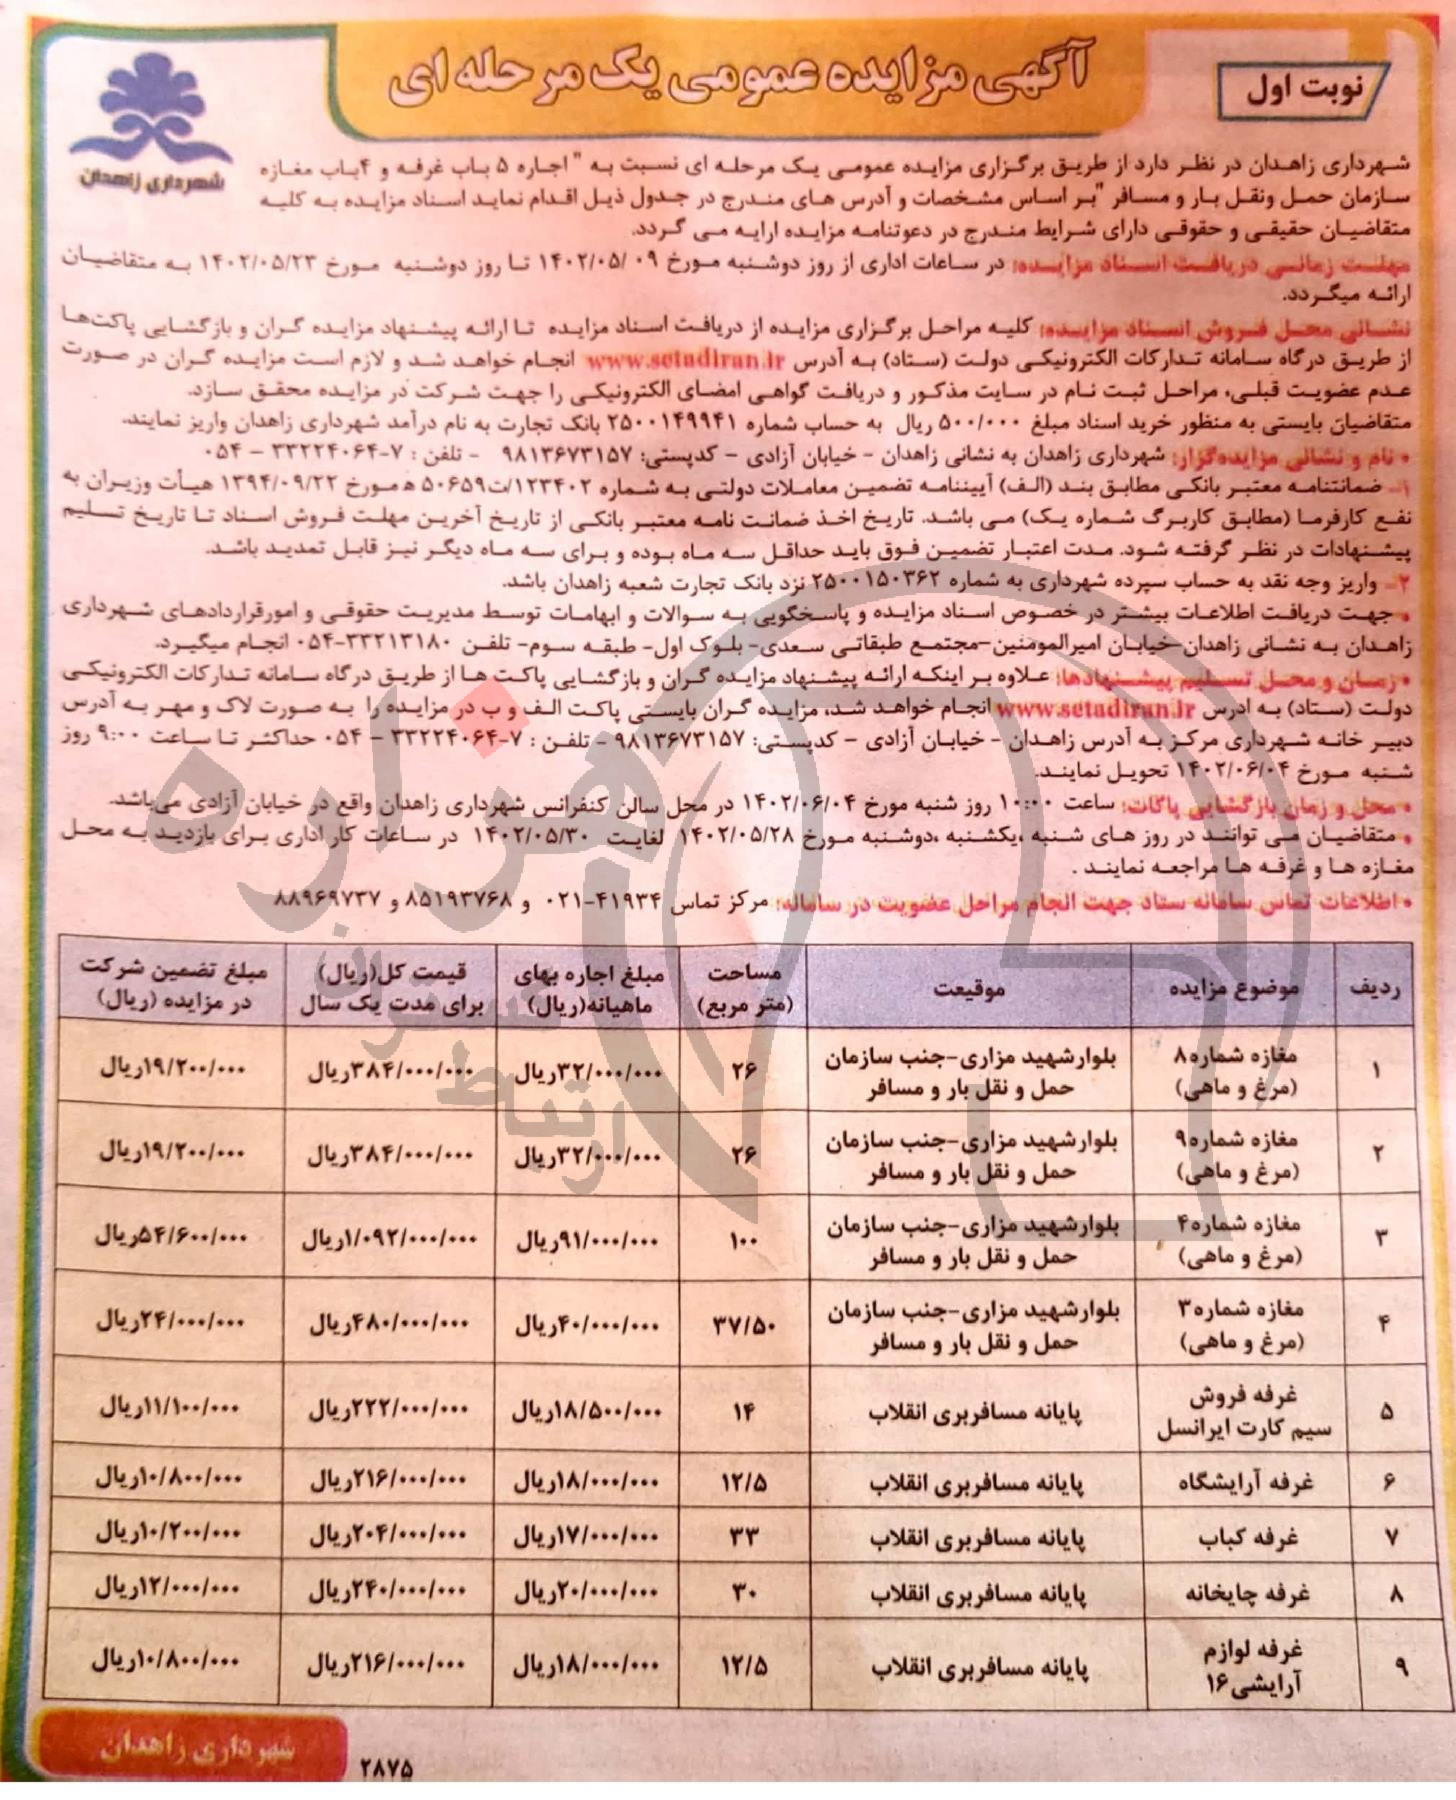 نوبت اول
آگهی مزایده عمومی یک مرحله ای
شهرداری زاهدان
شهرداری زاهدان در نظر دارد از طریق برگزاری مزایده عمومی یک مرحله ای نسبت به " اجاره ۵ باب غرفه و ۴باب مغازه
سازمان حمل ونقل بار و مسافر "بر اساس مشخصات و آدرس های مندرج در جدول ذیل اقدام نماید اسناد مزایده به کلیه
متقاضیان حقیقی و حقوقی دارای شرایط مندرج در دعوتنامه مزایده ارایه می گردد.
مهلت زمانی دریافت اسناد مزایده: در ساعات اداری از روز دوشنبه مورخ ۰۹ /۱۴۰۲/۰۵ تا روز دوشنبه مورخ ۱۴۰۲/۰۵/۲۳ به متقاضیان
ارائه میگردد.
نشانی محل فروش اسناد مزایده: کلیه مراحل برگزاری مزایده از دریافت اسناد مزایده تا ارائه پیشنهاد مزایده گران و بازگشایی پاکت‌ها
از طریق درگاه سامانه تدارکات الکترونیکی دولت (ستاد) به آدرس www.setadiran.ir انجام خواهد شد و لازم است مزایده گران در صورت
عدم عضویت قبلی، مراحل ثبت نام در سایت مذکور و دریافت گواهی امضای الکترونیکی را جهت شرکت در مزایده محقق سازد.
متقاضیان بایستی به منظور خرید اسناد مبلغ ۵۰۰/۰۰۰ ریال به حساب شماره ۲۵۰۰۱۴۹۹۴۱ بانک تجارت به نام درآمد شهرداری زاهدان واریز نمایند.
• نام و نشانی مزایده‌گزار: شهرداری زاهدان به نشانی زاهدان - خیابان آزادی - کدپستی: ۹۸۱۳۶۷۳۱۵۷ - تلفن : ۷-۳۳۲۲۴۰۶۴ - ۰۵۴
۱- ضمانتنامه معتبر بانکی مطابق بند (الف) آییننامه تضمین معاملات دولتی به شماره ۱۲۳۴۰۲/ت۵۰۶۵۹ ه مورخ ۱۳۹۴/۰۹/۲۲ هیأت وزیران به
نفع کارفرما (مطابق کاربرگ شماره یک) می باشد. تاریخ اخذ ضمانت نامه معتبر بانکی از تاریخ آخرین مهلت فروش اسناد تا تاریخ تسلیم
پیشنهادات در نظر گرفته شود. مدت اعتبار تضمین فوق باید حداقل سه ماه بوده و برای سه ماه دیگر نیز قابل تمدید باشد.
۲- واریز وجه نقد به حساب سپرده شهرداری به شماره ۲۵۰۰۱۵۰۳۶۲ نزد بانک تجارت شعبه زاهدان باشد.
• جهت دریافت اطلاعات بیشتر در خصوص اسناد مزایده و پاسخگویی به سوالات و ابهامات توسط مدیریت حقوقی و امورقراردادهای شهرداری
زاهدان به نشانی زاهدان-خیابان امیرالمومنین-مجتمع طبقاتی سعدی- بلوک اول- طبقه سوم- تلفن ۳۳۲۱۳۱۸۰-۰۵۴ انجام میگیرد.
• زمان و محل تسلیم پیشنهادها: علاوه بر اینکه ارائه پیشنهاد مزایده گران و بازگشایی پاکت ها از طریق درگاه سامانه تدارکات الکترونیکی
دولت (ستاد) به ادرس www.setadiran.ir انجام خواهد شد، مزایده گران بایستی پاکت الف و ب در مزایده را به صورت لاک و مهر به آدرس
دبیر خانه شهرداری مرکز به آدرس زاهدان - خیابان آزادی - کدپستی: ۹۸۱۳۶۷۳۱۵۷ - تلفن : ۷-۳۳۲۲۴۰۶۴ - ۰۵۴ حداکثر تا ساعت ۹:۰۰ روز
شنبه مورخ ۱۴۰۲/۰۶/۰۴ تحویل نمایند.
• محل و زمان بازگشایی پاکات: ساعت ۱۰:۰۰ روز شنبه مورخ ۱۴۰۲/۰۶/۰۴ در محل سالن کنفرانس شهرداری زاهدان واقع در خیابان آزادی می‌باشد.
• متقاضیان می توانند در روز های شنبه ،یکشنبه ،دوشنبه مورخ ۱۴۰۲/۰۵/۲۸ لغایت ۱۴۰۲/۰۵/۳۰ در ساعات کار اداری برای بازدید به محل
مغازه ها و غرفه ها مراجعه نمایند .
• اطلاعات تماس سامانه ستاد جهت انجام مراحل عضویت در سامانه: مرکز تماس ۴۱۹۳۴-۰۲۱ و ۸۵۱۹۳۷۶۸ و ۸۸۹۶۹۷۳۷
ردیف موضوع مزایده موقیعت مساحت (متر مربع) مبلغ اجاره بهای ماهیانه(ریال) قیمت کل(ریال) برای مدت یک سال مبلغ تضمین شرکت در مزایده (ریال)
۱ مغازه شماره۸ (مرغ و ماهی) بلوارشهید مزاری-جنب سازمان حمل و نقل بار و مسافر ۲۶ ۳۲/۰۰۰/۰۰۰ریال ۳۸۴/۰۰۰/۰۰۰ریال ۱۹/۲۰۰/۰۰۰ریال
۲ مغازه شماره۹ (مرغ و ماهی) بلوارشهید مزاری-جنب سازمان حمل و نقل بار و مسافر ۲۶ ۳۲/۰۰۰/۰۰۰ریال ۳۸۴/۰۰۰/۰۰۰ریال ۱۹/۲۰۰/۰۰۰ریال
۳ مغازه شماره۴ (مرغ و ماهی) بلوارشهید مزاری-جنب سازمان حمل و نقل بار و مسافر ۱۰۰ ۹۱/۰۰۰/۰۰۰ریال ۱/۰۹۲/۰۰۰/۰۰۰ریال ۵۴/۶۰۰/۰۰۰ریال
۴ مغازه شماره۳ (مرغ و ماهی) بلوارشهید مزاری-جنب سازمان حمل و نقل بار و مسافر ۳۷/۵۰ ۴۰/۰۰۰/۰۰۰ریال ۴۸۰/۰۰۰/۰۰۰ریال ۲۴/۰۰۰/۰۰۰ریال
۵ غرفه فروش سیم کارت ایرانسل پایانه مسافربری انقلاب ۱۴ ۱۸/۵۰۰/۰۰۰ریال ۲۲۲/۰۰۰/۰۰۰ریال ۱۱/۱۰۰/۰۰۰ریال
۶ غرفه آرایشگاه پایانه مسافربری انقلاب ۱۲/۵ ۱۸/۰۰۰/۰۰۰ریال ۲۱۶/۰۰۰/۰۰۰ریال ۱۰/۸۰۰/۰۰۰ریال
۷ غرفه کباب پایانه مسافربری انقلاب ۳۳ ۱۷/۰۰۰/۰۰۰ریال ۲۰۴/۰۰۰/۰۰۰ریال ۱۰/۲۰۰/۰۰۰ریال
۸ غرفه چایخانه پایانه مسافربری انقلاب ۳۰ ۲۰/۰۰۰/۰۰۰ریال ۲۴۰/۰۰۰/۰۰۰ریال ۱۲/۰۰۰/۰۰۰ریال
۹ غرفه لوازم آرایشی۱۶ پایانه مسافربری انقلاب ۱۲/۵ ۱۸/۰۰۰/۰۰۰ریال ۲۱۶/۰۰۰/۰۰۰ریال ۱۰/۸۰۰/۰۰۰ریال
۲۸۷۵
شهرداری زاهدان
هزاره